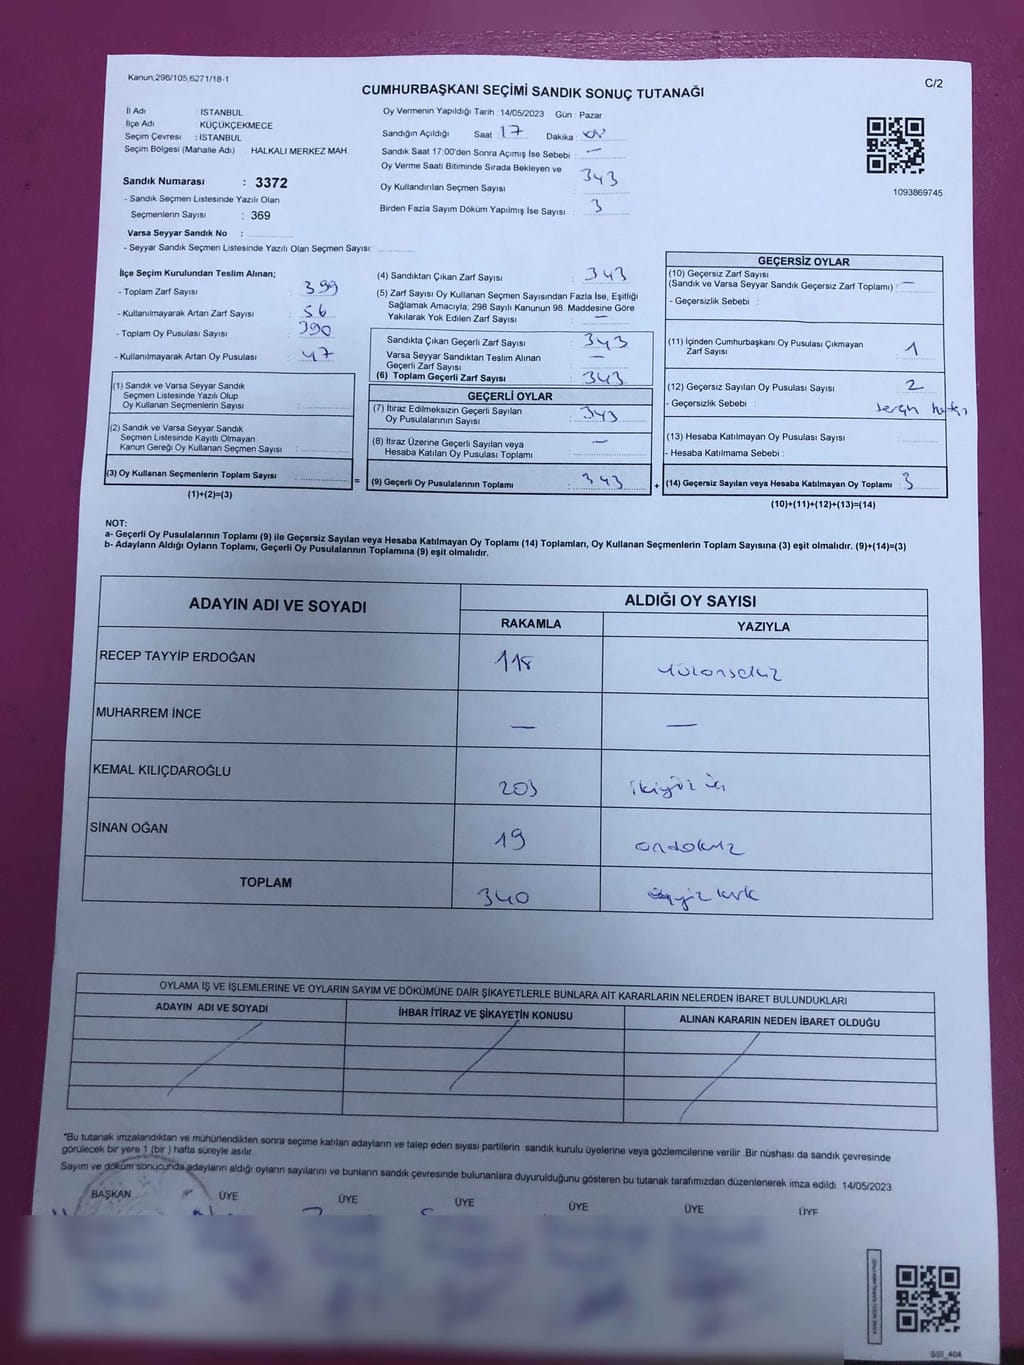 Kanun,298/105,6271/18-1
C/2
CUMHURBAŞKANI SEÇİMİ SANDIK SONUÇ TUTANAĞI
İl Adı İSTANBUL
İlçe Adı KÜÇÜKÇEKMECE
Seçim Çevresi : İSTANBUL
Seçim Bölgesi (Mahalle Adı) : HALKALI MERKEZ MAH.
Sandık Numarası : 3372
- Sandık Seçmen Listesinde Yazılı Olan
Seçmenlerin Sayısı : 369
Varsa Seyyar Sandık No :
- Seyyar Sandık Seçmen Listesinde Yazılı Olan Seçmen Sayısı:
Oy Vermenin Yapıldığı Tarih : 14/05/2023 Gün : Pazar
Sandığın Açıldığı Saat 17 Dakika :
Sandık Saat 17:00'den Sonra Açımış İse Sebebi : —
Oy Verme Saati Bitiminde Sırada Bekleyen ve
Oy Kullandırılan Seçmen Sayısı 343
Birden Fazla Sayım Döküm Yapılmış İse Sayısı : 3
1093869745
İlçe Seçim Kurulundan Teslim Alınan;
- Toplam Zarf Sayısı : 399
- Kullanılmayarak Artan Zarf Sayısı : 56
- Toplam Oy Pusulası Sayısı : 390
- Kullanılmayarak Artan Oy Pusulası : 47
(1) Sandık ve Varsa Seyyar Sandık
Seçmen Listesinde Yazılı Olup
Oy Kullanan Seçmenlerin Sayısı :
(2) Sandık ve Varsa Seyyar Sandık
Seçmen Listesinde Kayıtlı Olmayan
Kanun Gereği Oy Kullanan Seçmen Sayısı :
(3) Oy Kullanan Seçmenlerin Toplam Sayısı :
(1)+(2)=(3)
=
(4) Sandıktan Çıkan Zarf Sayısı : 343
(5) Zarf Sayısı Oy Kullanan Seçmen Sayısından Fazla İse, Eşitliği
Sağlamak Amacıyla, 298 Sayılı Kanunun 98. Maddesine Göre
Yakılarak Yok Edilen Zarf Sayısı : —
Sandıkta Çıkan Geçerli Zarf Sayısı : 343
Varsa Seyyar Sandıktan Teslim Alınan
Geçerli Zarf Sayısı : —
(6) Toplam Geçerli Zarf Sayısı : 343
GEÇERLİ OYLAR
(7) İtiraz Edilmeksizin Geçerli Sayılan
Oy Pusulalarının Sayısı : 343
(8) İtiraz Üzerine Geçerli Sayılan veya
Hesaba Katılan Oy Pusulası Toplamı : —
(9) Geçerli Oy Pusulalarının Toplamı : 343
+
GEÇERSİZ OYLAR
(10) Geçersiz Zarf Sayısı
(Sandık ve Varsa Seyyar Sandık Geçersiz Zarf Toplamı) : —
- Geçersizlik Sebebi :
(11) İçinden Cumhurbaşkanı Oy Pusulası Çıkmayan
Zarf Sayısı : 1
(12) Geçersiz Sayılan Oy Pusulası Sayısı : 2
- Geçersizlik Sebebi :
(13) Hesaba Katılmayan Oy Pusulası Sayısı :
- Hesaba Katılmama Sebebi :
(14) Geçersiz Sayılan veya Hesaba Katılmayan Oy Toplamı : 3
(10)+(11)+(12)+(13)=(14)
NOT:
a- Geçerli Oy Pusulalarının Toplamı (9) ile Geçersiz Sayılan veya Hesaba Katılmayan Oy Toplamı (14) Toplamları, Oy Kullanan Seçmenlerin Toplam Sayısına (3) eşit olmalıdır. (9)+(14)=(3)
b- Adayların Aldığı Oyların Toplamı, Geçerli Oy Pusulalarının Toplamına (9) eşit olmalıdır.
ADAYIN ADI VE SOYADI ALDIĞI OY SAYISI
RAKAMLA YAZIYLA
RECEP TAYYİP ERDOĞAN 118 Yüzonsekiz
MUHARREM İNCE — —
KEMAL KILIÇDAROĞLU 203 ikiyüz üç
SİNAN OĞAN 19 ondokuz
TOPLAM 340 üçyüz kırk
OYLAMA İŞ VE İŞLEMLERİNE VE OYLARIN SAYIM VE DÖKÜMÜNE DAİR ŞİKAYETLERLE BUNLARA AİT KARARLARIN NELERDEN İBARET BULUNDUKLARI
ADAYIN ADI VE SOYADI İHBAR İTİRAZ VE ŞİKAYETİN KONUSU ALINAN KARARIN NEDEN İBARET OLDUĞU
*Bu tutanak imzalandıktan ve mühürlendikten sonra seçime katılan adayların ve talep eden siyasi partilerin sandık kurulu üyelerine veya gözlemcilerine verilir .Bir nüshası da sandık çevresinde
görülecek bir yere 1 (bir ) hafta süreyle asılır.
Sayım ve döküm sonucunda adayların aldığı oyların sayılarını ve bunların sandık çevresinde bulunanlara duyurulduğunu gösteren bu tutanak tarafımızdan düzenlenerek imza edildi. 14/05/2023
BAŞKAN ÜYE ÜYE ÜYE ÜYE ÜYE ÜYE
SSI_404